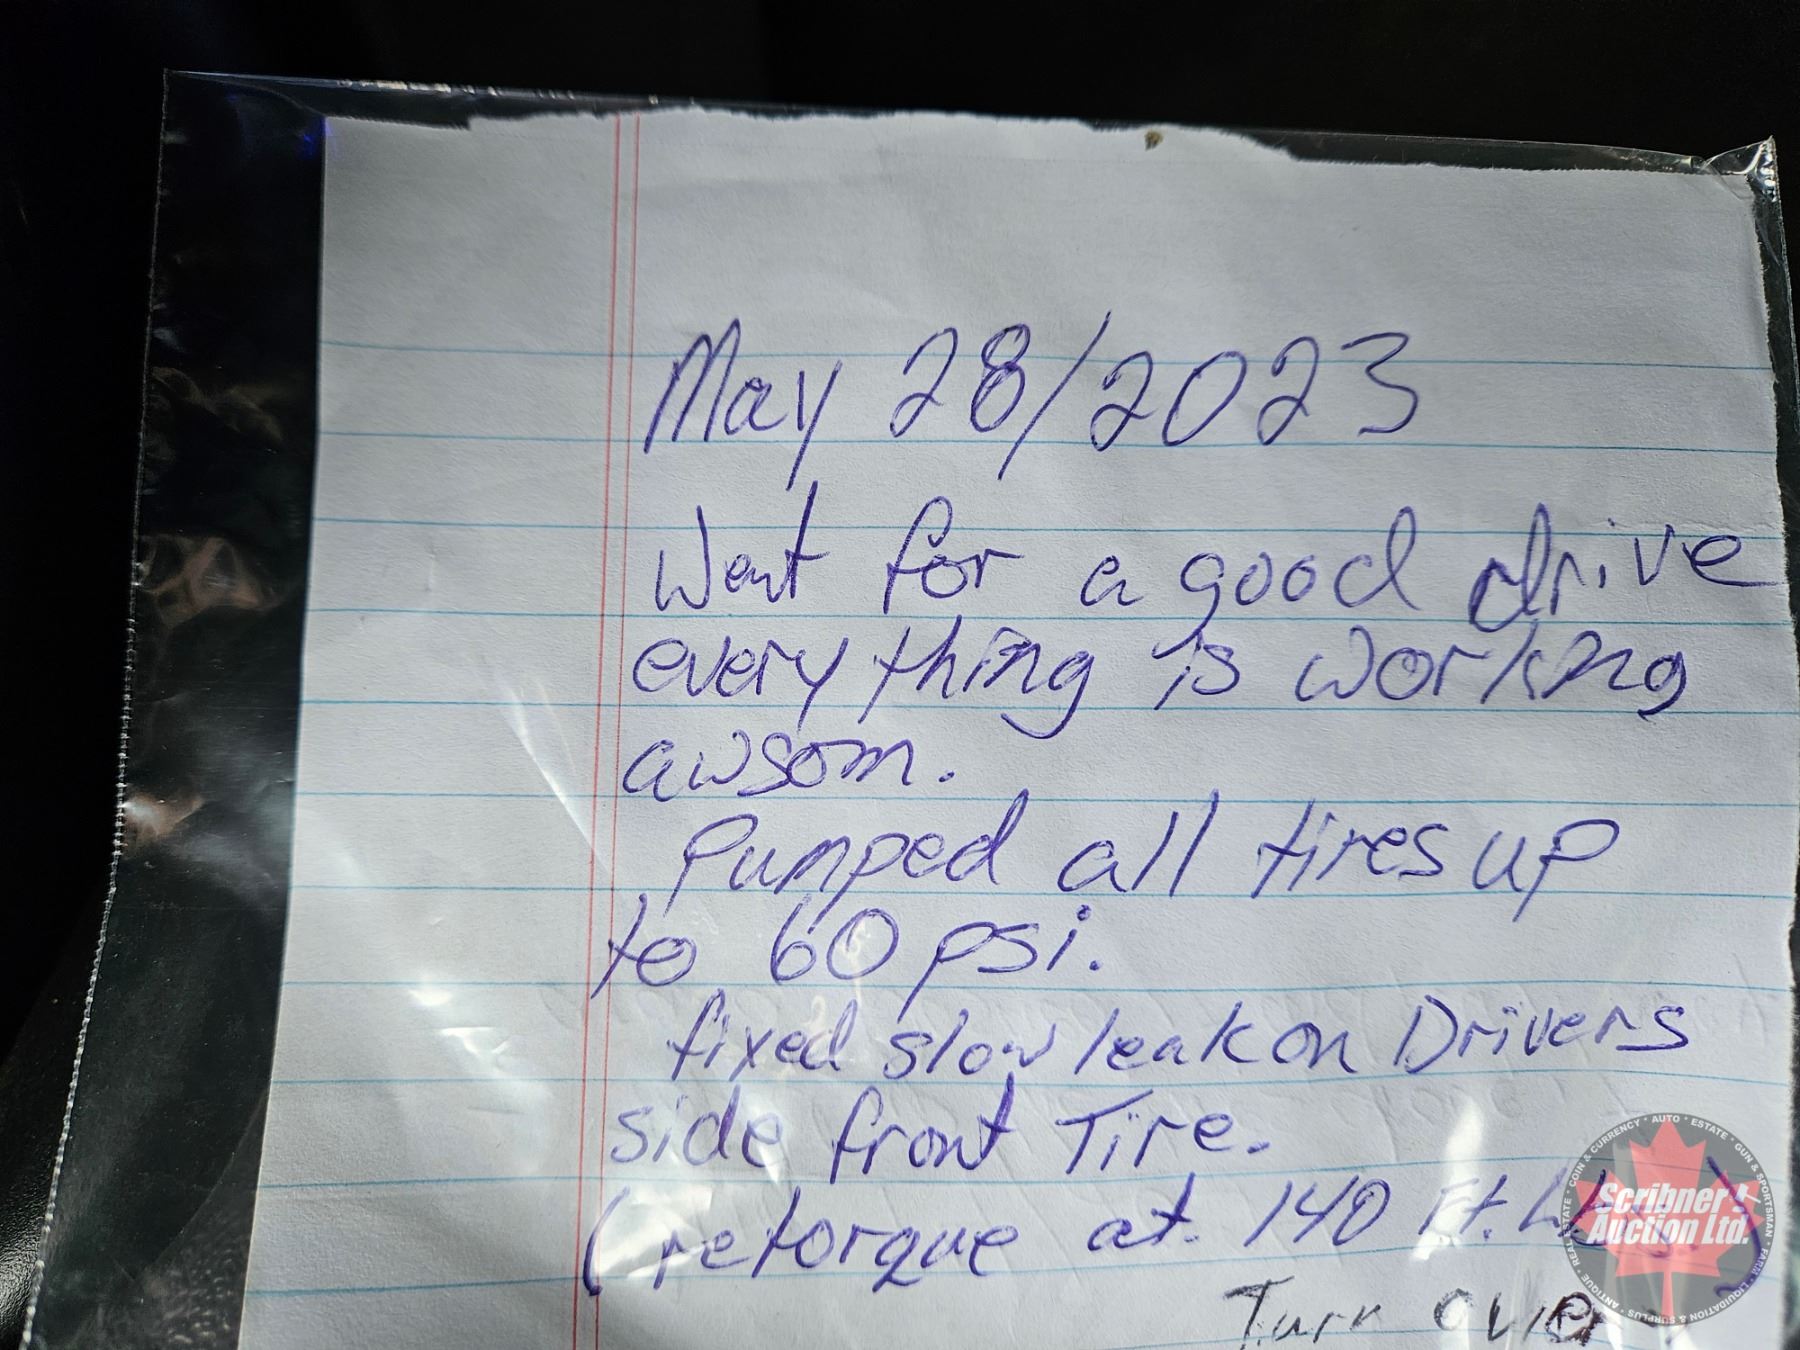 May 28/2023
Went for a good drive
everything is working
awsom.
Pumped all tires up
to 60 psi.
fixed slow leak on Drivers
side front Tire.
(retorque at. 140 Ft. Lbs.)
Turn over
Scribner's
Auction Ltd.
COIN & CURRENCY • AUTO • ESTATE • GUN & SPORTSMAN • FARM • LIQUIDATION & SURPLUS • ANTIQUE • REAL ESTATE •